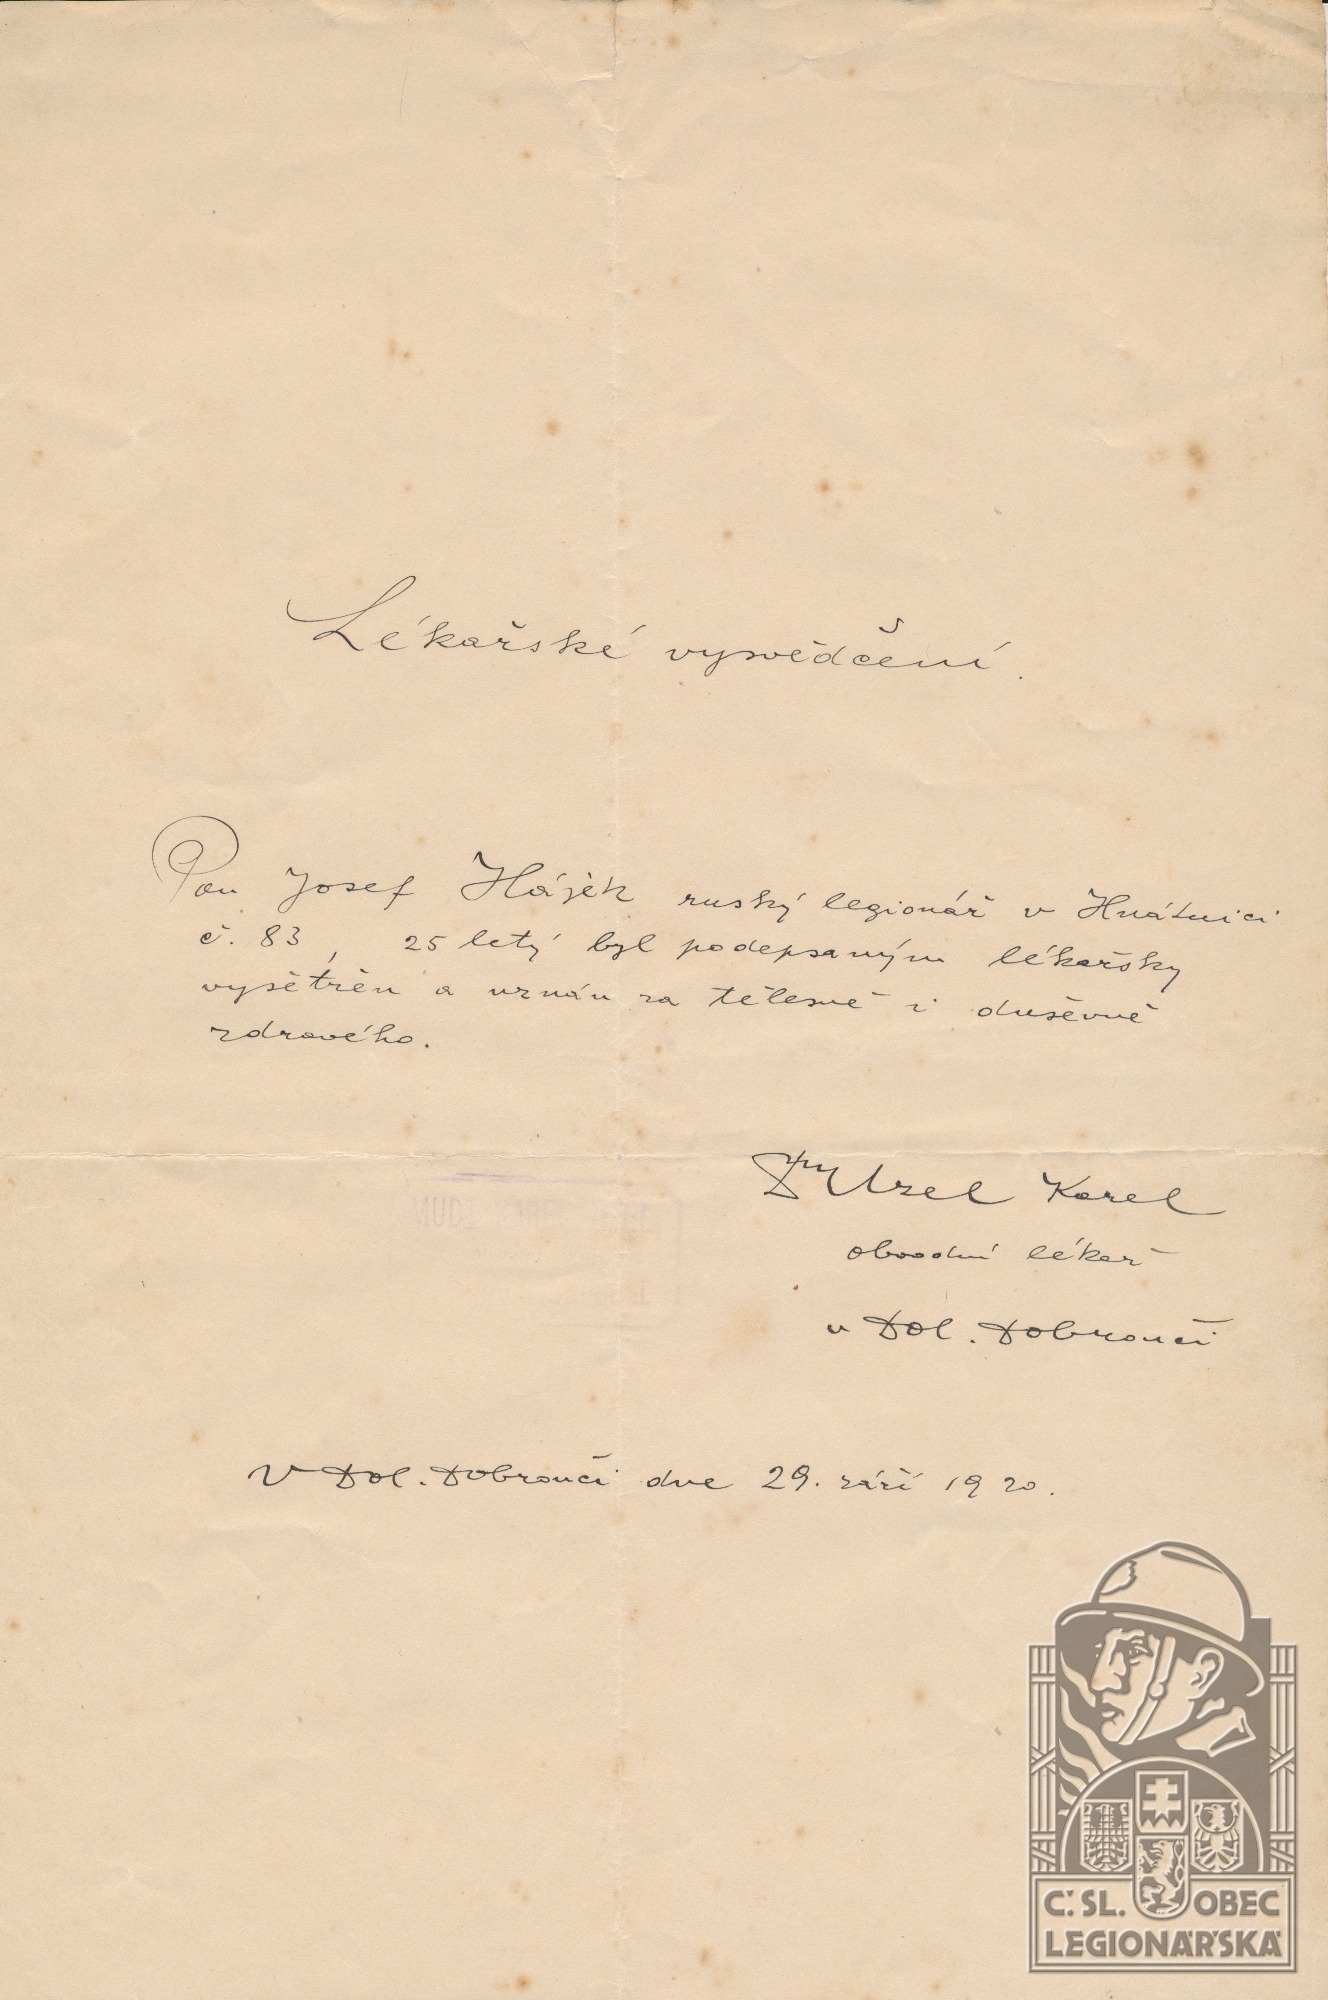 Lékařské vysvědčení.
Pan Josef Hájek ruský legionář v Hnátnici
č. 83, 25 letý byl podepsaným lékařsky
vyšetřěn a uznán za tělesně i duševně
zdravého.
MUDr KAREL
Dr Uzel Karel
obvodní lékař
v Dol. Dobrouči
V Dol. Dobrouči dne 29. září 1920.
Č. SL. OBEC
LEGIONÁŘSKÁ